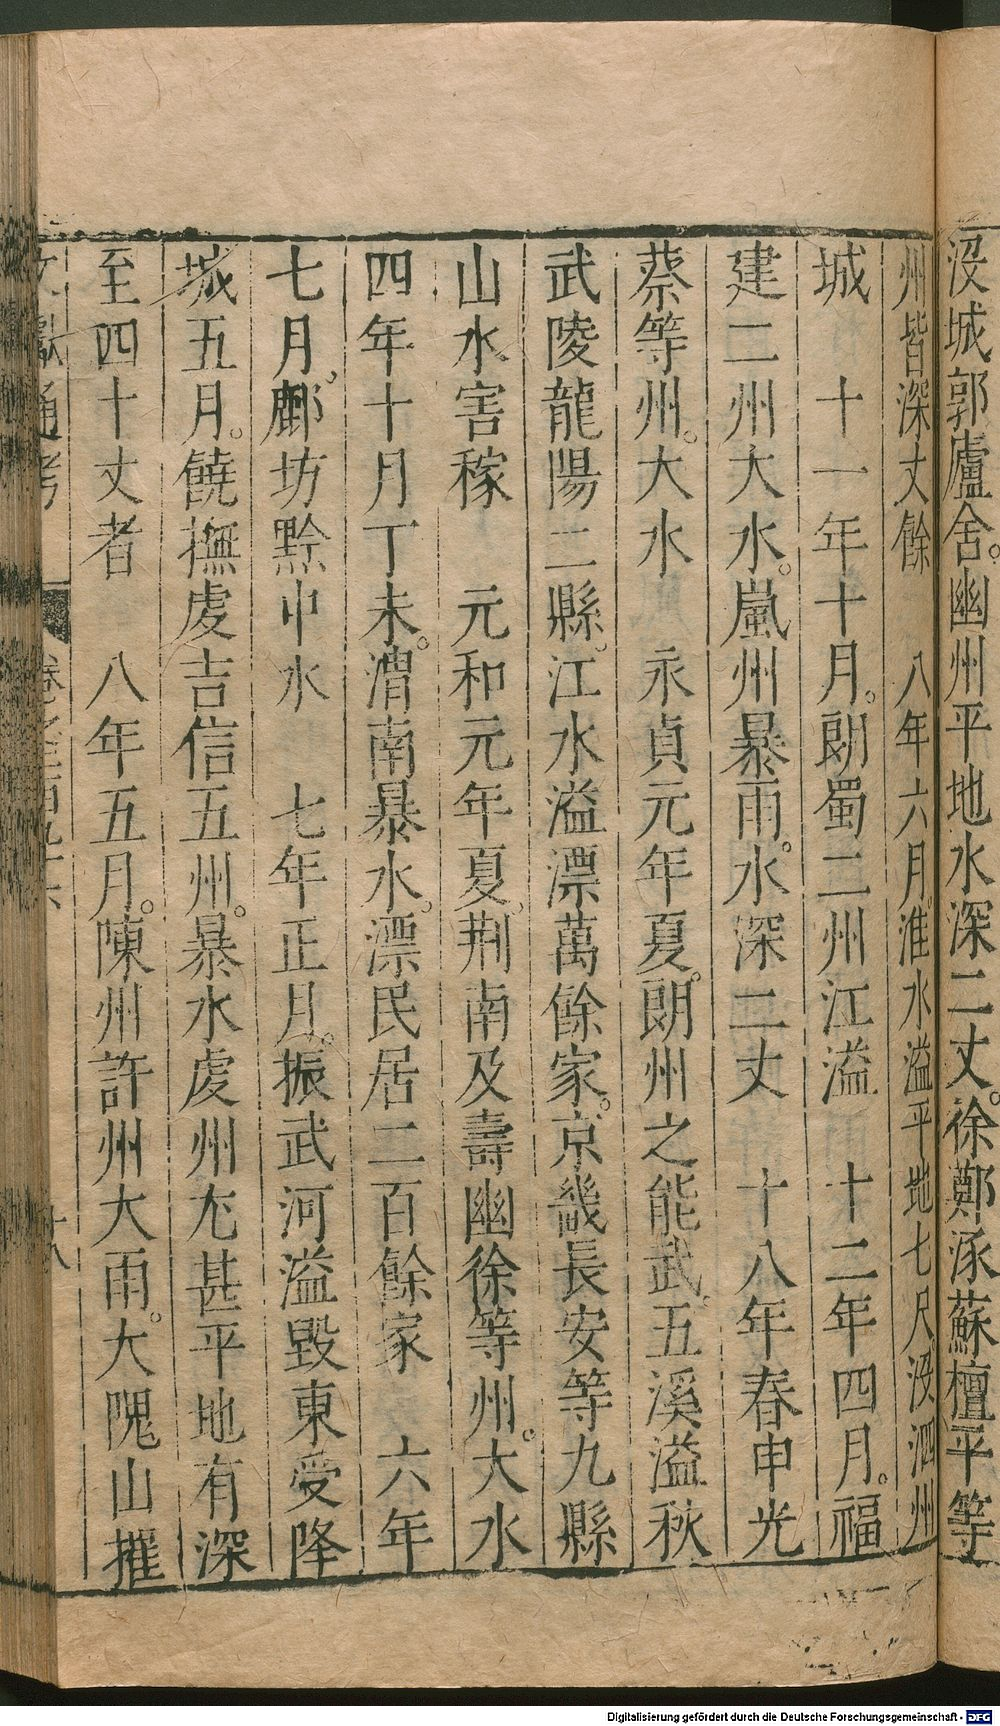 没城郭廬舍。幽州平地水深二丈。徐鄭涿蘇檀平等
州皆深丈餘　八年六月淮水溢平地七尺没泗州
城　十一年十月。朗蜀二州江溢　十二年四月。福
建二州大水。嵐州暴雨。水深二丈　十八年春申光
蔡等州。大水　永貞元年夏。朗州之熊武。五溪溢秋
武陵龍陽二縣。江水溢漂萬餘家。京畿長安等九縣
山水害稼　元和元年夏。荆南及壽幽徐等州。大水
四年十月丁未。渭南暴水。漂民居二百餘家　六年
七月。鄜坊黔中水　七年正月。振武河溢毀東受降
城五月。饒撫虔吉信五州。暴水虔州尤甚平地有深
至四十丈者　八年五月。陳州許州大雨。大隗山摧
文獻通考
十八
Digitalisierung gefördert durch die Deutsche Forschungsgemeinschaft - DFG